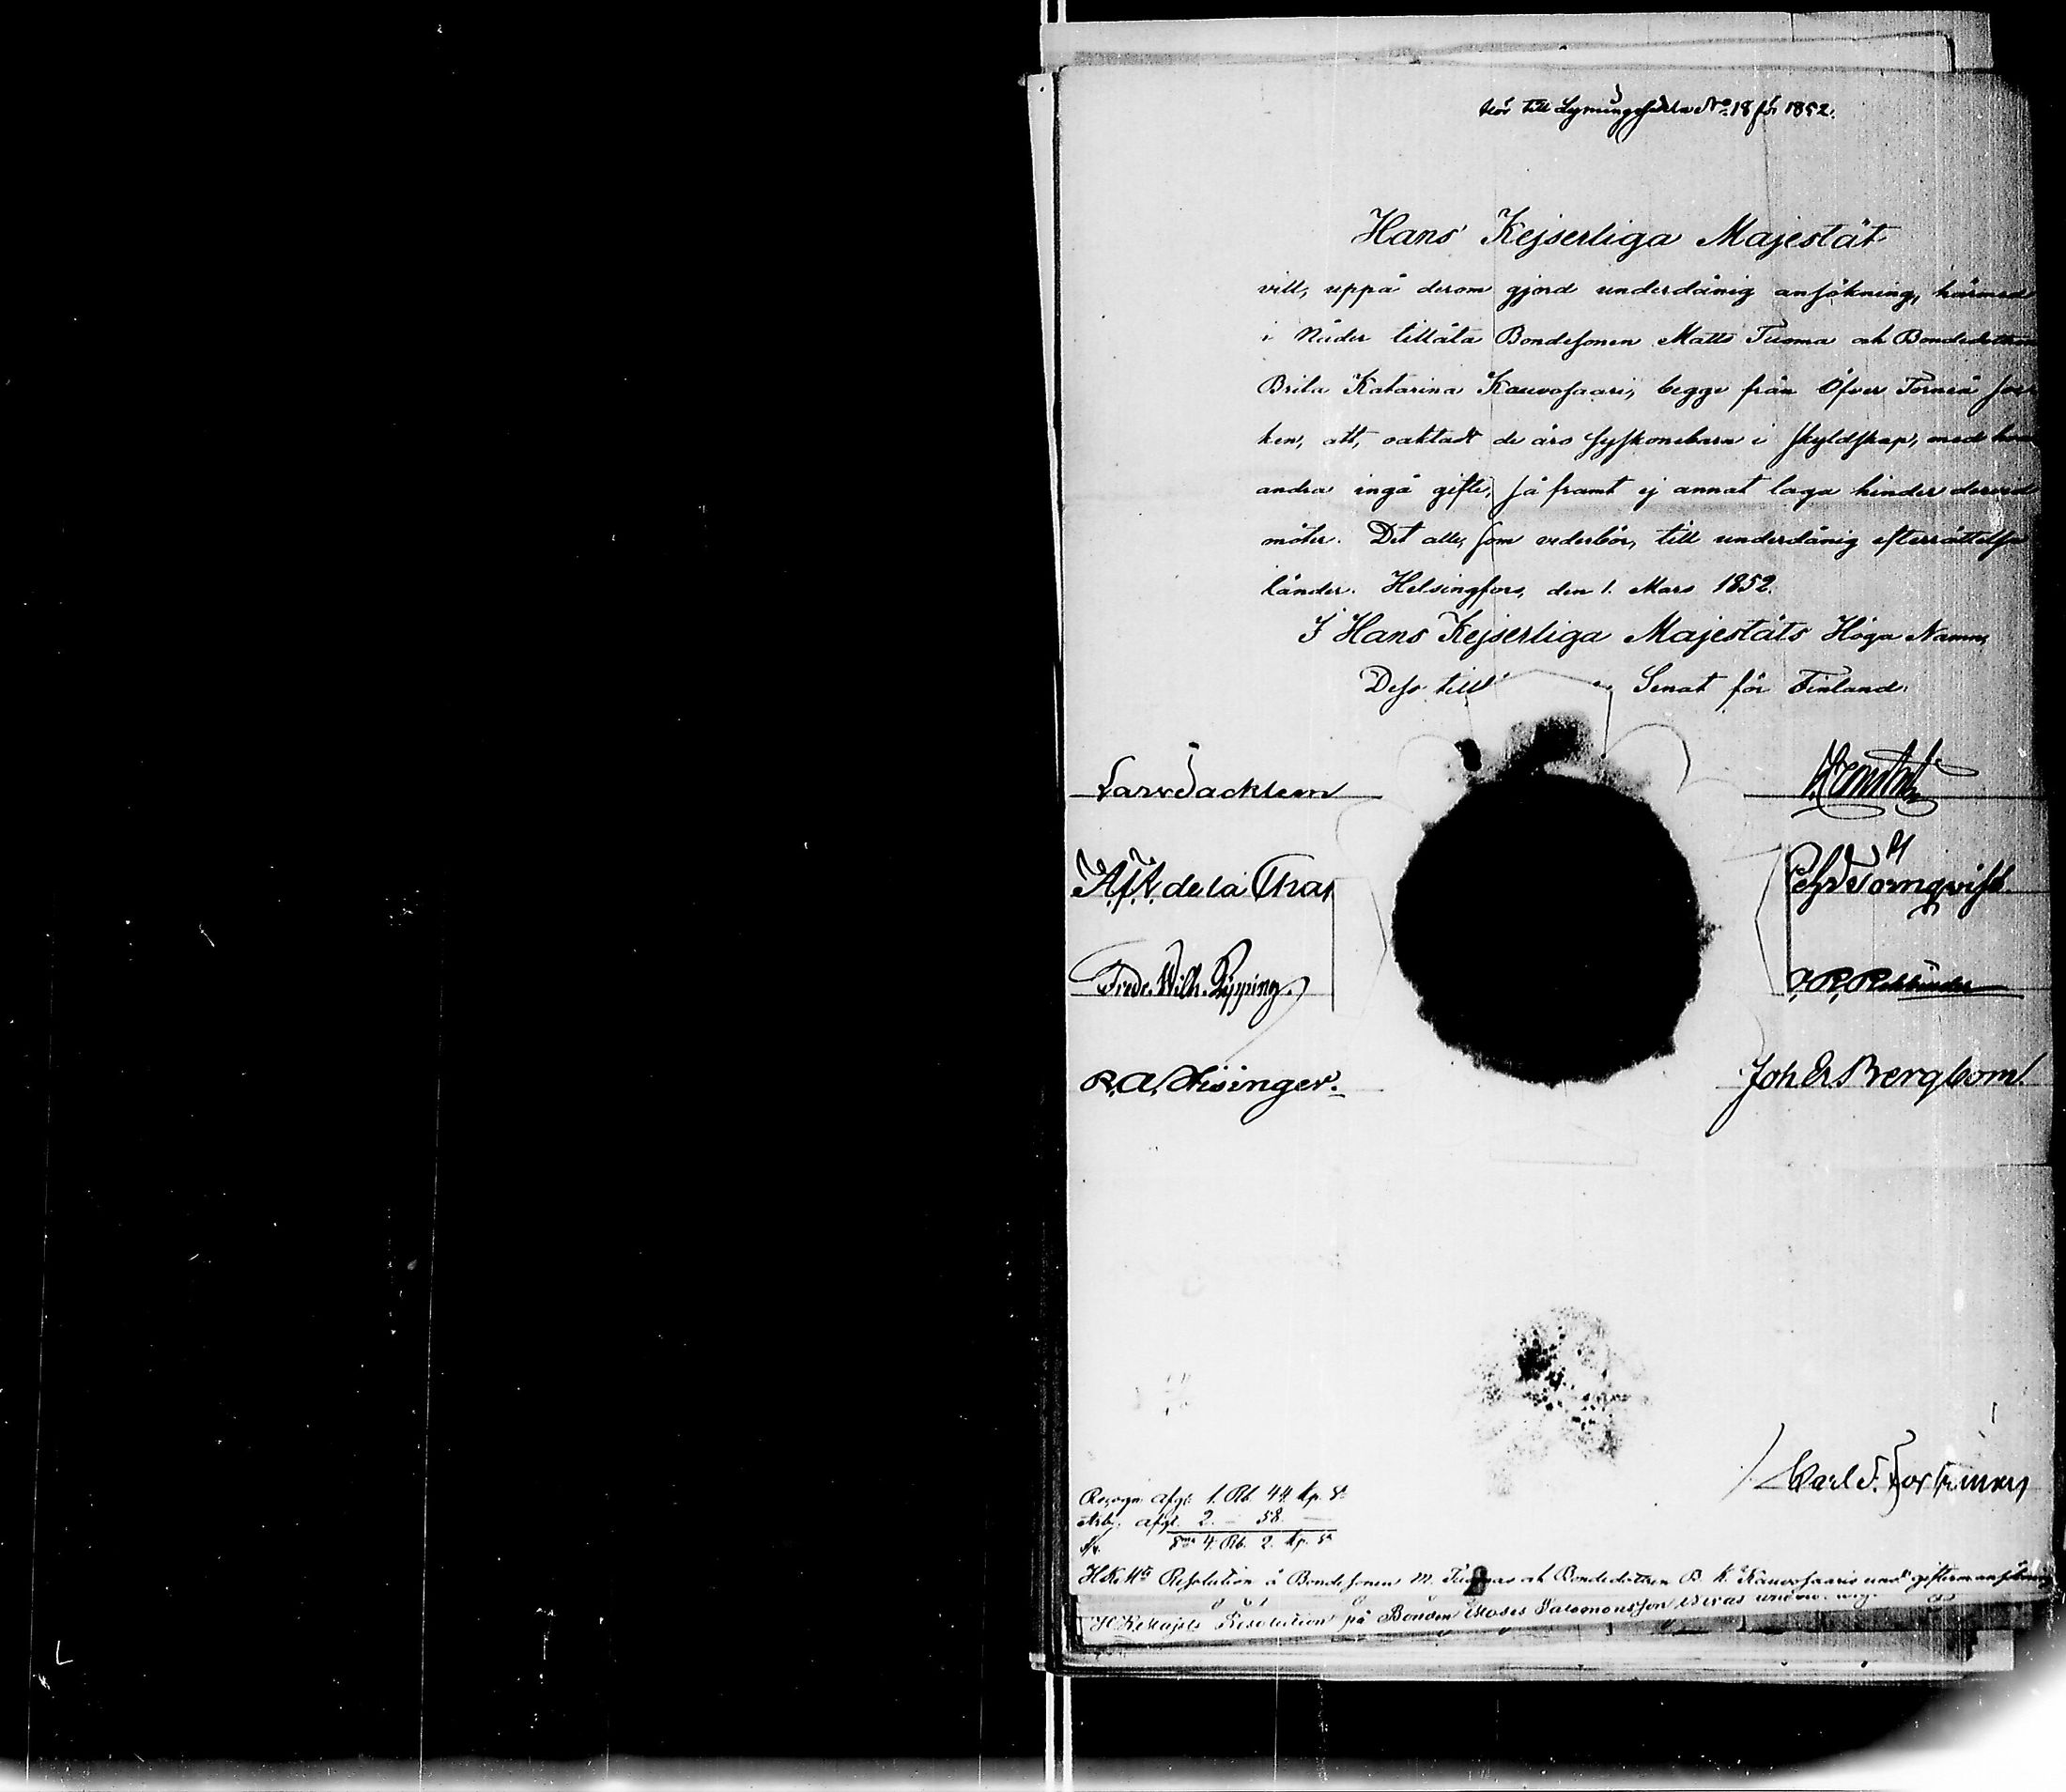 Hör till Lysningssedla No. 18 för 1852.
Hans Kejserliga Majestät
vill, uppå derom gjord underdånig ansökning, härmed
i Nåder tillåta Bondesonen Matts Tuoma och Bondedottren
Brita Katarina Kauvosaari, begge från Öfver Torneå Soc-
ken, att, oaktadt de äro syskonebarn i skyldskap, med hvar
andra ingå gifte, så framt ej annat laga hinder dervid
möter. Det alle, som vederbör, till underdånig efterrättelse
länder. Helsingfors, den 1. Mars 1852.
I Hans Kejserliga Majestäts Höga Namn,
Dess till Senat för Finland.
Lars Sackleen
A. f. A. de la Chapelle
Pehr Törnqvist
Fredr. Wilh. Pipping
J. R. Rehbinder
R. A. Hisinger.
Joh Er Bergbom.
Carl F. Forsman
Recogn. afgt. 1. Rb. 44 kp. Sr
afgt. 2. — 58. —
Sma 4. Rb. 2. kp. Sr
H. K. Mts Resolution å Bondesonen M. Tuomas och Bondedottren B. K. Kauvosaaris und. gifterm. ansökning
H. K. Majsts Resolution på Bonden Moses Salomonsson